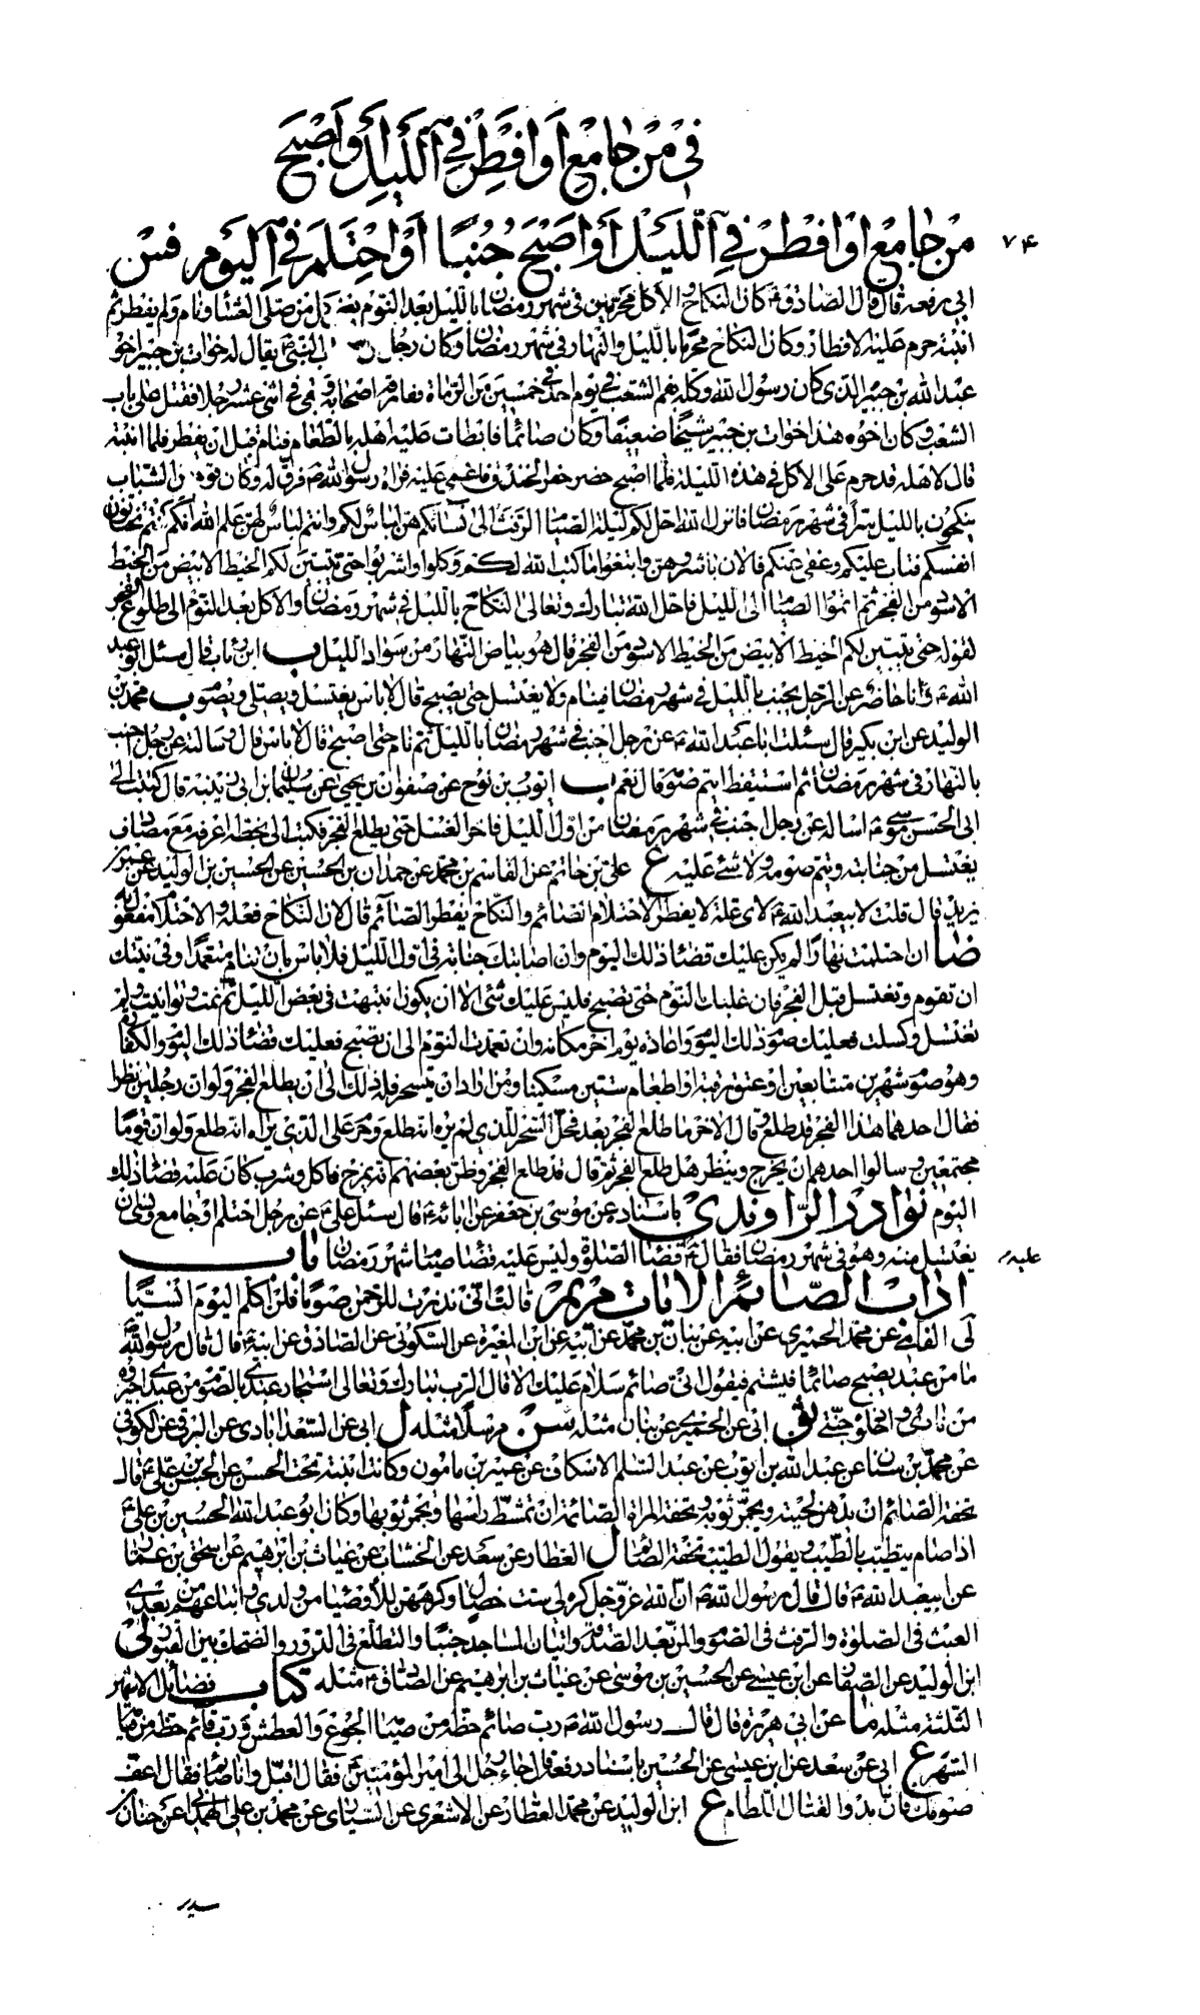 في من جامع أو أفطر في الليل أو أصبح
من جامع أو أفطر في الليل أو أصبح جنبا أو احتلم في اليوم فس
۷۴
أبي رفعه قال قال الصادق ع كان النكاح والأكل محرمين في شهر رمضان بالليل بعد النوم يعني كل من صلى العشاء ونام ولم يفطر ثم
انتبه حرم عليه الإفطار وكان النكاح محرما بالليل والنهار في شهر رمضان وكان رجل من أصحاب النبي يقال له خوات بن جبير أخو
عبد الله بن جبير الذي كان رسول الله وكله بفم الشعب في يوم أحد في خمسين من الرماة ففارقه أصحابه وبقي في اثني عشر رجلا فقتل على باب
الشعب وكان أخوه هذا خوات بن جبير شيخا ضعيفا وكان صائما فأبطأت عليه أهله بالطعام فنام قبل أن يفطر فلما انتبه
قال لأهله قد حرم علي الأكل في هذه الليلة فلما أصبح حضر حفر الخندق فأغمي عليه فرآه رسول الله ص فرق له وكان قوم من الشباب
ينكحون بالليل سرا في شهر رمضان فأنزل الله أحل لكم ليلة الصيام الرفث إلى نسائكم هن لباس لكم وأنتم لباس لهن علم الله أنكم كنتم تختانون
أنفسكم فتاب عليكم وعفى عنكم فالآن باشروهن وابتغوا ما كتب الله لكم وكلوا واشربوا حتى يتبين لكم الخيط الأبيض من الخيط
الأسود من الفجر ثم أتموا الصيام إلى الليل فأحل الله تبارك وتعالى النكاح بالليل في شهر رمضان والأكل بعد النوم إلى طلوع الفجر
لقوله حتى يتبين لكم الخيط الأبيض من الخيط الأسود من الفجر قال هو بياض النهار من سواد الليل ب ابن رئاب قال سئل أبو عبد
الله ع وأنا حاضر عن الرجل يجنب بالليل في شهر رمضان فينام ولا يغتسل حتى يصبح قال لا بأس يغتسل ويصلي ويصوم ب محمد بن
الوليد عن ابن بكير قال سئلت أبا عبد الله ع عن رجل أجنب في شهر رمضان بالليل ثم نام حتى أصبح قال لا بأس قال وسألته عن رجل أجنب
بالنهار في شهر رمضان ثم استيقظ أيتم صومه قال نعم ب أيوب بن نوح عن صفوان بن يحيى عن سليمان بن أبي زينبة قال كتبت إلى
أبي الحسن موسى ع أسأله عن رجل أجنب في شهر رمضان من أول الليل فأخر الغسل حتى يطلع الفجر فكتب إلي بخطه أعرفه مع مصادف
يغتسل من جنابته ويتم صومه ولا شيء عليه ع علي بن حاتم عن القاسم بن محمد عن حمدان بن الحسين عن الحسين بن الوليد عن عمر بن
يزيد قال قلت لأبيعبد الله ع لأي علة لا يفطر الاحتلام الصائم والنكاح يفطر الصائم قال لأن النكاح فعله والاحتلام مفعول به
ضا إن احتلمت نهارا لم يكن عليك قضاء ذلك اليوم وإن أصابتك جنابة في أول الليل فلا بأس بأن تنام متعمدا وفي نيتك
أن تقوم وتغتسل قبل الفجر فإن غلبك النوم حتى تصبح فليس عليك شيء إلا أن يكون انتبهت في بعض الليل ثم نمت وتوانيت ولم
تغتسل وكسلت فعليك صوم ذلك اليوم وإعادة يوم آخر مكانه وإن تعمدت النوم إلى أن تصبح فعليك قضاء ذلك اليوم والكفارة
وهو صوم شهرين متتابعين أو عتق رقبة أو إطعام ستين مسكينا ومن أراد أن يتسحر فله ذلك إلى أن يطلع الفجر ولو أن رجلين نظرا
فقال أحدهما هذا الفجر قد طلع وقال الآخر ما طلع الفجر بعد فحل التسحر للذي لم يره أنه طلع وحرم على الذي يراه أنه طلع ولو أن قوما
مجتمعين سألوا أحدهم أن يخرج وينظر هل طلع الفجر ثم قال قد طلع الفجر وظن بعضهم أنه يمزح فأكل وشرب كان عليه قضاء ذلك
اليوم نوادر الراوندي بإسناده عن موسى بن جعفر عن آبائه ع قال سئل علي ع عن رجل احتلم أو جامع فنسي أن
يغتسل منه وهو في شهر رمضان فقال ع قضاء الصلوة وليس عليه قضاء صيام شهر رمضان باب
عليه
آداب الصائم الآيات مريم قالت إني نذرت للرحمن صوما فلن أكلم اليوم إنسيا
لي الفامي عن محمد الحميري عن أبيه عن بنان بن محمد عن أبيه عن ابن المغيرة عن السكوني عن الصادق عن أبيه ع قال قال رسول الله ص
ما من عبد يصبح صائما فيشتم فيقول إني صائم سلام عليك إلا قال الرب تبارك وتعالى استجار عبدي بالصوم من عبدي أجيروه
من ناري وأدخلوه جنتي ثو أبي عن الحميري عن بنان مثله سن مرسلا مثله ل أبي عن السعدآبادي عن البرقي عن الكوفي
عن محمد بن سنان عن عبد الله بن أيوب عن عبد السلم الإسكاف عن عمير بن مأمون وكانت ابنته تحت الحسن عن الحسن بن علي ع قال
تحفة الصائم أن يدهن لحيته ويجمر ثوبه وتحفة المرأة الصائمة أن تمشط رأسها وتجمر ثوبها وكان أبو عبد الله الحسين بن علي ع
إذا صام يتطيب بالطيب ويقول الطيب تحفة الصائم ل العطار عن سعد عن الخشاب عن غياث بن إبرهيم عن إسحق بن عمار
عن أبيعبد الله ع قال قال رسول الله ص إن الله عز وجل كره لي ست خصال وكرههن للأوصياء من ولدي وأتباعهم من بعدي
العبث في الصلوة والرفث في الصوم والمن بعد الصدقة وإتيان المساجد جنبا والتطلع في الدور والضحك بين القبور لي
ابن الوليد عن الصفار عن ابن عيسى عن الحسين بن موسى عن غياث بن إبرهيم عن الصادق ع مثله كتاب فضائل الأشهر
الثلثة مثله ما عن أبي هريرة قال قال رسول الله ص رب صائم حظه من صيامه الجوع والعطش ورب قائم حظه من قيامه
السهر ع أبي عن سعد عن ابن عيسى عن الحسين بإسناده رفعه قال جاء رجل إلى أمير المؤمنين ع فقال أقبل وأنا صائم فقال أعف
صومك فإن بدو القتال اللطام ع ابن الوليد عن محمد العطار عن الأشعري عن السياري عن محمد بن علي الهمداني عن حنان بن
سدير